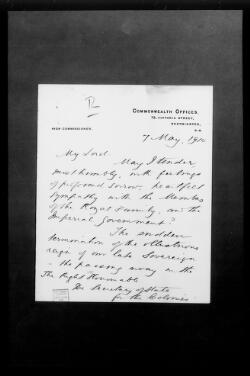 COMMONWEALTH OFFICES,
72, VICTORIA STREET,
WESTMINSTER,
S.W.
HIGH COMMISSIONER.
7 May, 1910
My Lord
May I tender
most humbly, with feelings
of profound sorrow heartfelt
sympathy with the Members
of the Royal Family, and the
Imperial Government?
The sudden
termination of the illustrious
reign of our late Sovereign
- the passing away in the
The Right Honourable
The Secretary of State
for the Colonies